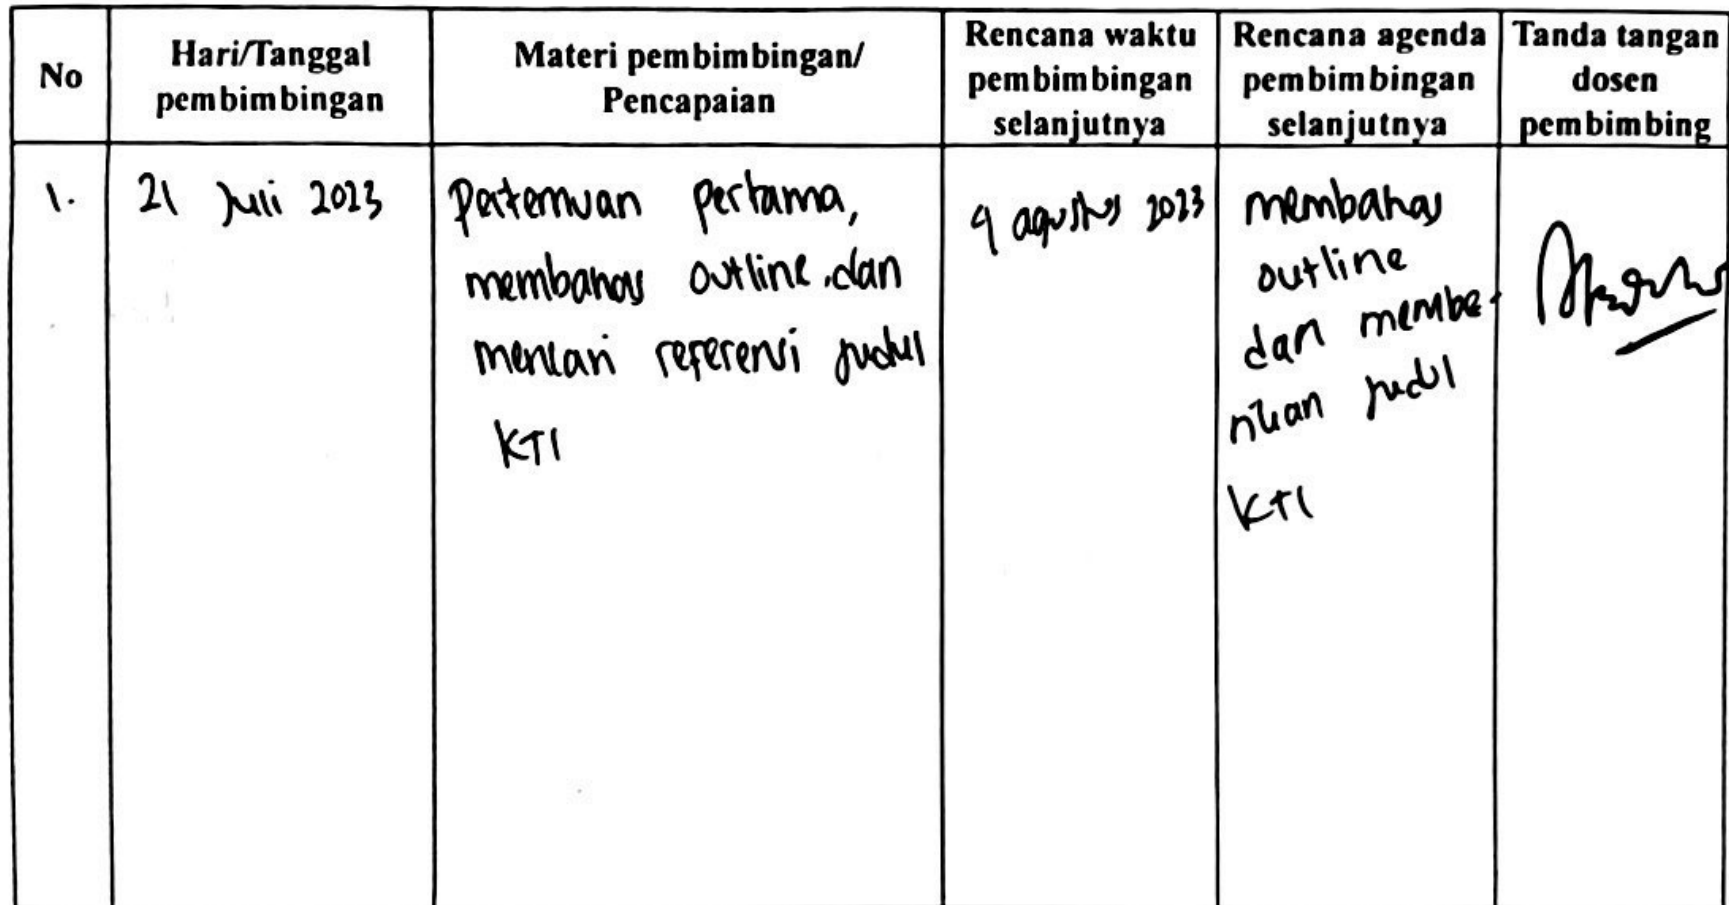 No
Hari/Tanggal
pembimbingan
Materi pembimbingan/
Pencapaian
Rencana waktu
pembimbingan
selanjutnya
Rencana agenda
pembimbingan
selanjutnya
Tanda tangan
dosen
pembimbing
1.
21 Juli 2023
Pertemuan pertama,
membahas outline dan
mencari referensi judul
KTI
9 agustus 2023
membahas
outline
dan membe-
rikan judul
KTI